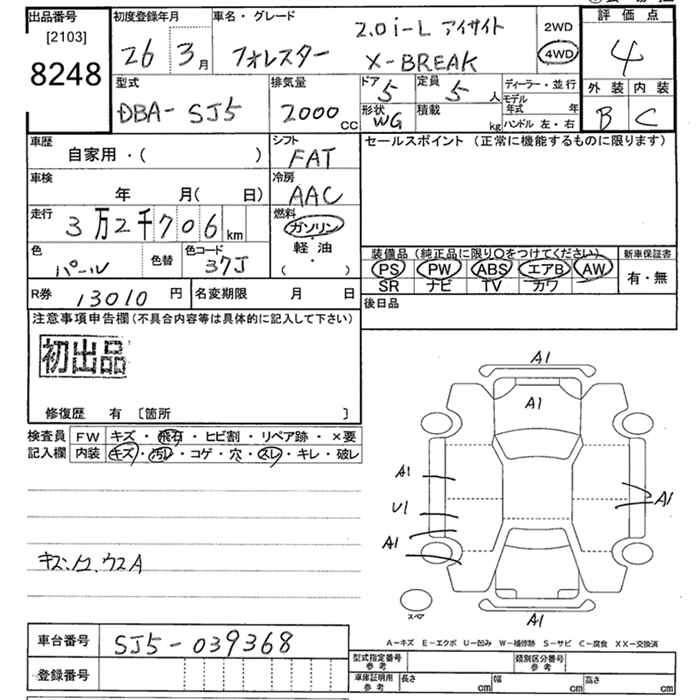 出品番号
[2103]
8248
初度登録年月
26 3月
車名・グレード
フォレスター
2.0i-L アイサイト
X-BREAK
2WD
4WD
評価点
4
外装 内装
B C
型式
DBA- SJ5
排気量
2000cc
ドア 5
形状 WG
定員 5人
積載 kg
ディーラー・並行
モデル年式 年
ハンドル 左・右
車歴
自家用・( )
シフト
FAT
セールスポイント (正常に機能するものに限ります)
車検
年 月( 日)
冷房
AAC
走行
3万2千706km
燃料
ガソリン
軽油
( ・ )
色
パール
色替
色コード
37J
装備品(純正品に限り○をつけてください)
PS PW ABS エアB AW
SR ナビ TV カワ
新車保証書
有・無
R券 13010円
名変期限 月 日
後日品
注意事項申告欄(不具合内容等は具体的に記入して下さい)
初出品
修復歴 有 [箇所 ]
検査員記入欄
FW キズ・飛石・ヒビ割・リペア跡・×要
内装 キズ・汚レ・コゲ・穴・スレ・キレ・破レ
A1
A1
A1
U1
A1
A1
A1
スペア
A-キズ E-エクボ U-凹み W-補修跡 S-サビ C-腐食 XX-交換済
車台番号
SJ5-039368
登録番号
型式指定番号 参考
類別区分番号 参考
車庫証明用 参考
長さ cm
幅 cm
高さ cm